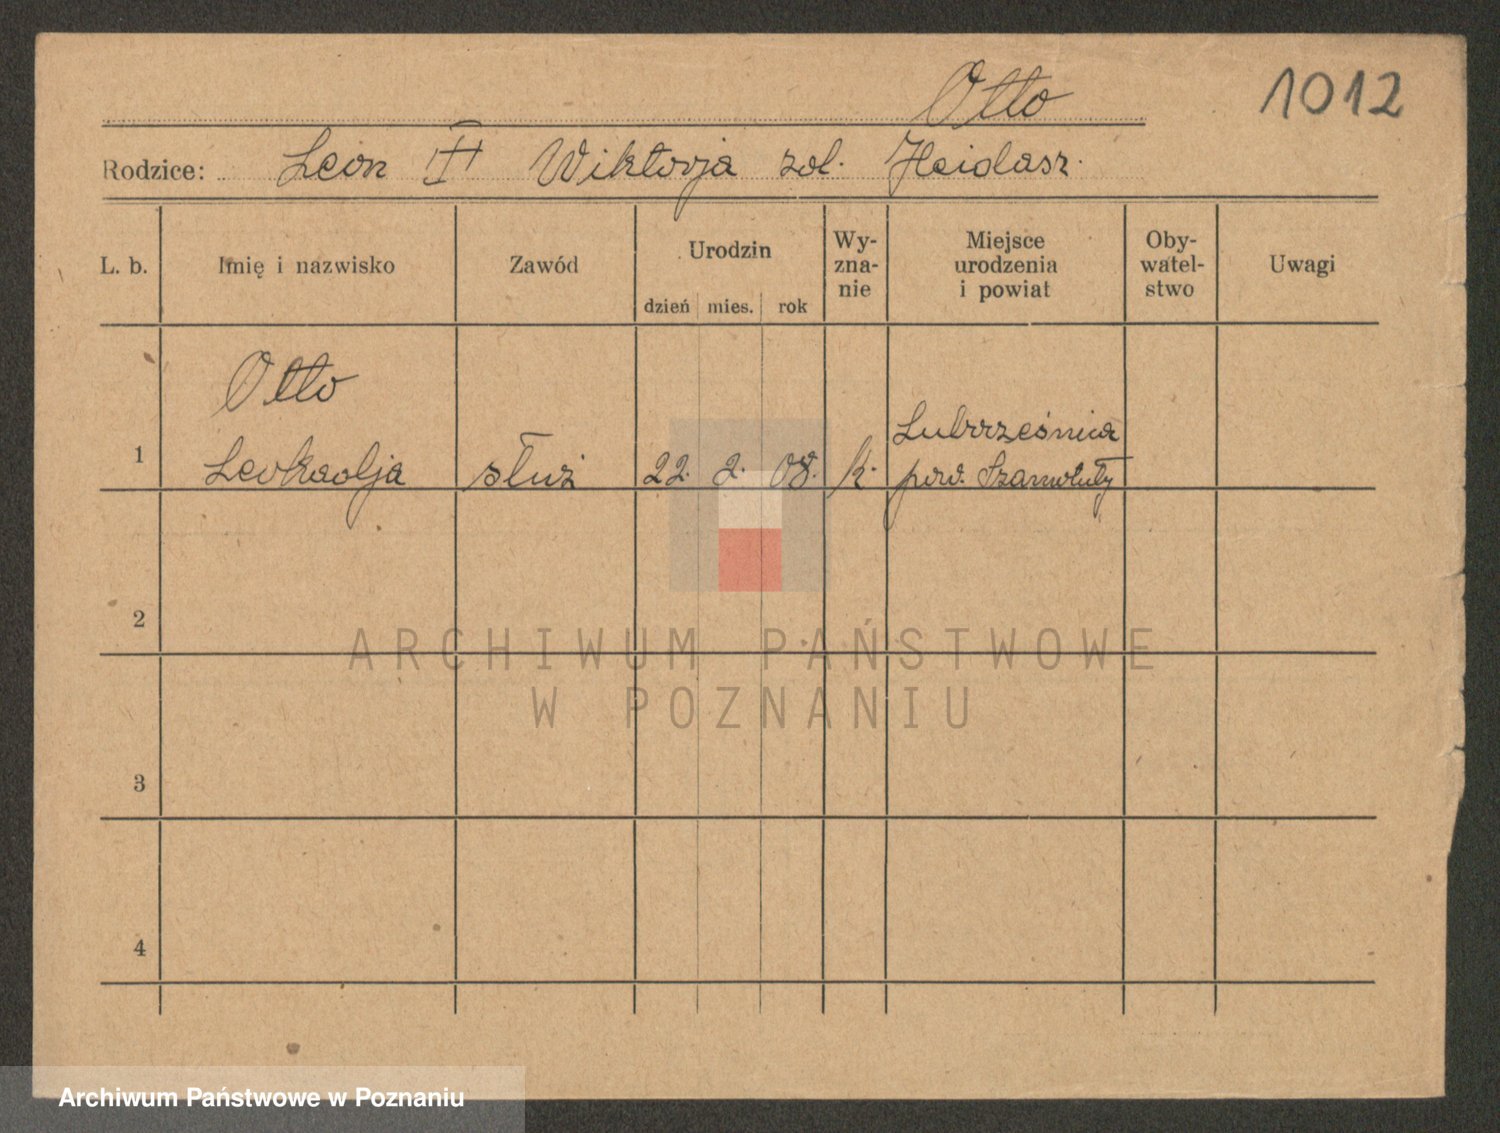 Otto
1012
Rodzice: Leon Wiktorja zol. Heidasz.
L. b.
Imię i nazwisko
Zawód
Urodzin
dzień mies. rok
Wy-
zna-
nie
Miejsce
urodzenia
i powiat
Oby-
watel-
stwo
Uwagi
Otto
1 Leokadja służ 22. 2. 08. k.
pow. Szamotuły
2
3
4
ARCHIWUM PAŃSTWOWE
W POZNANIU
Archiwum Państwowe w Poznaniu